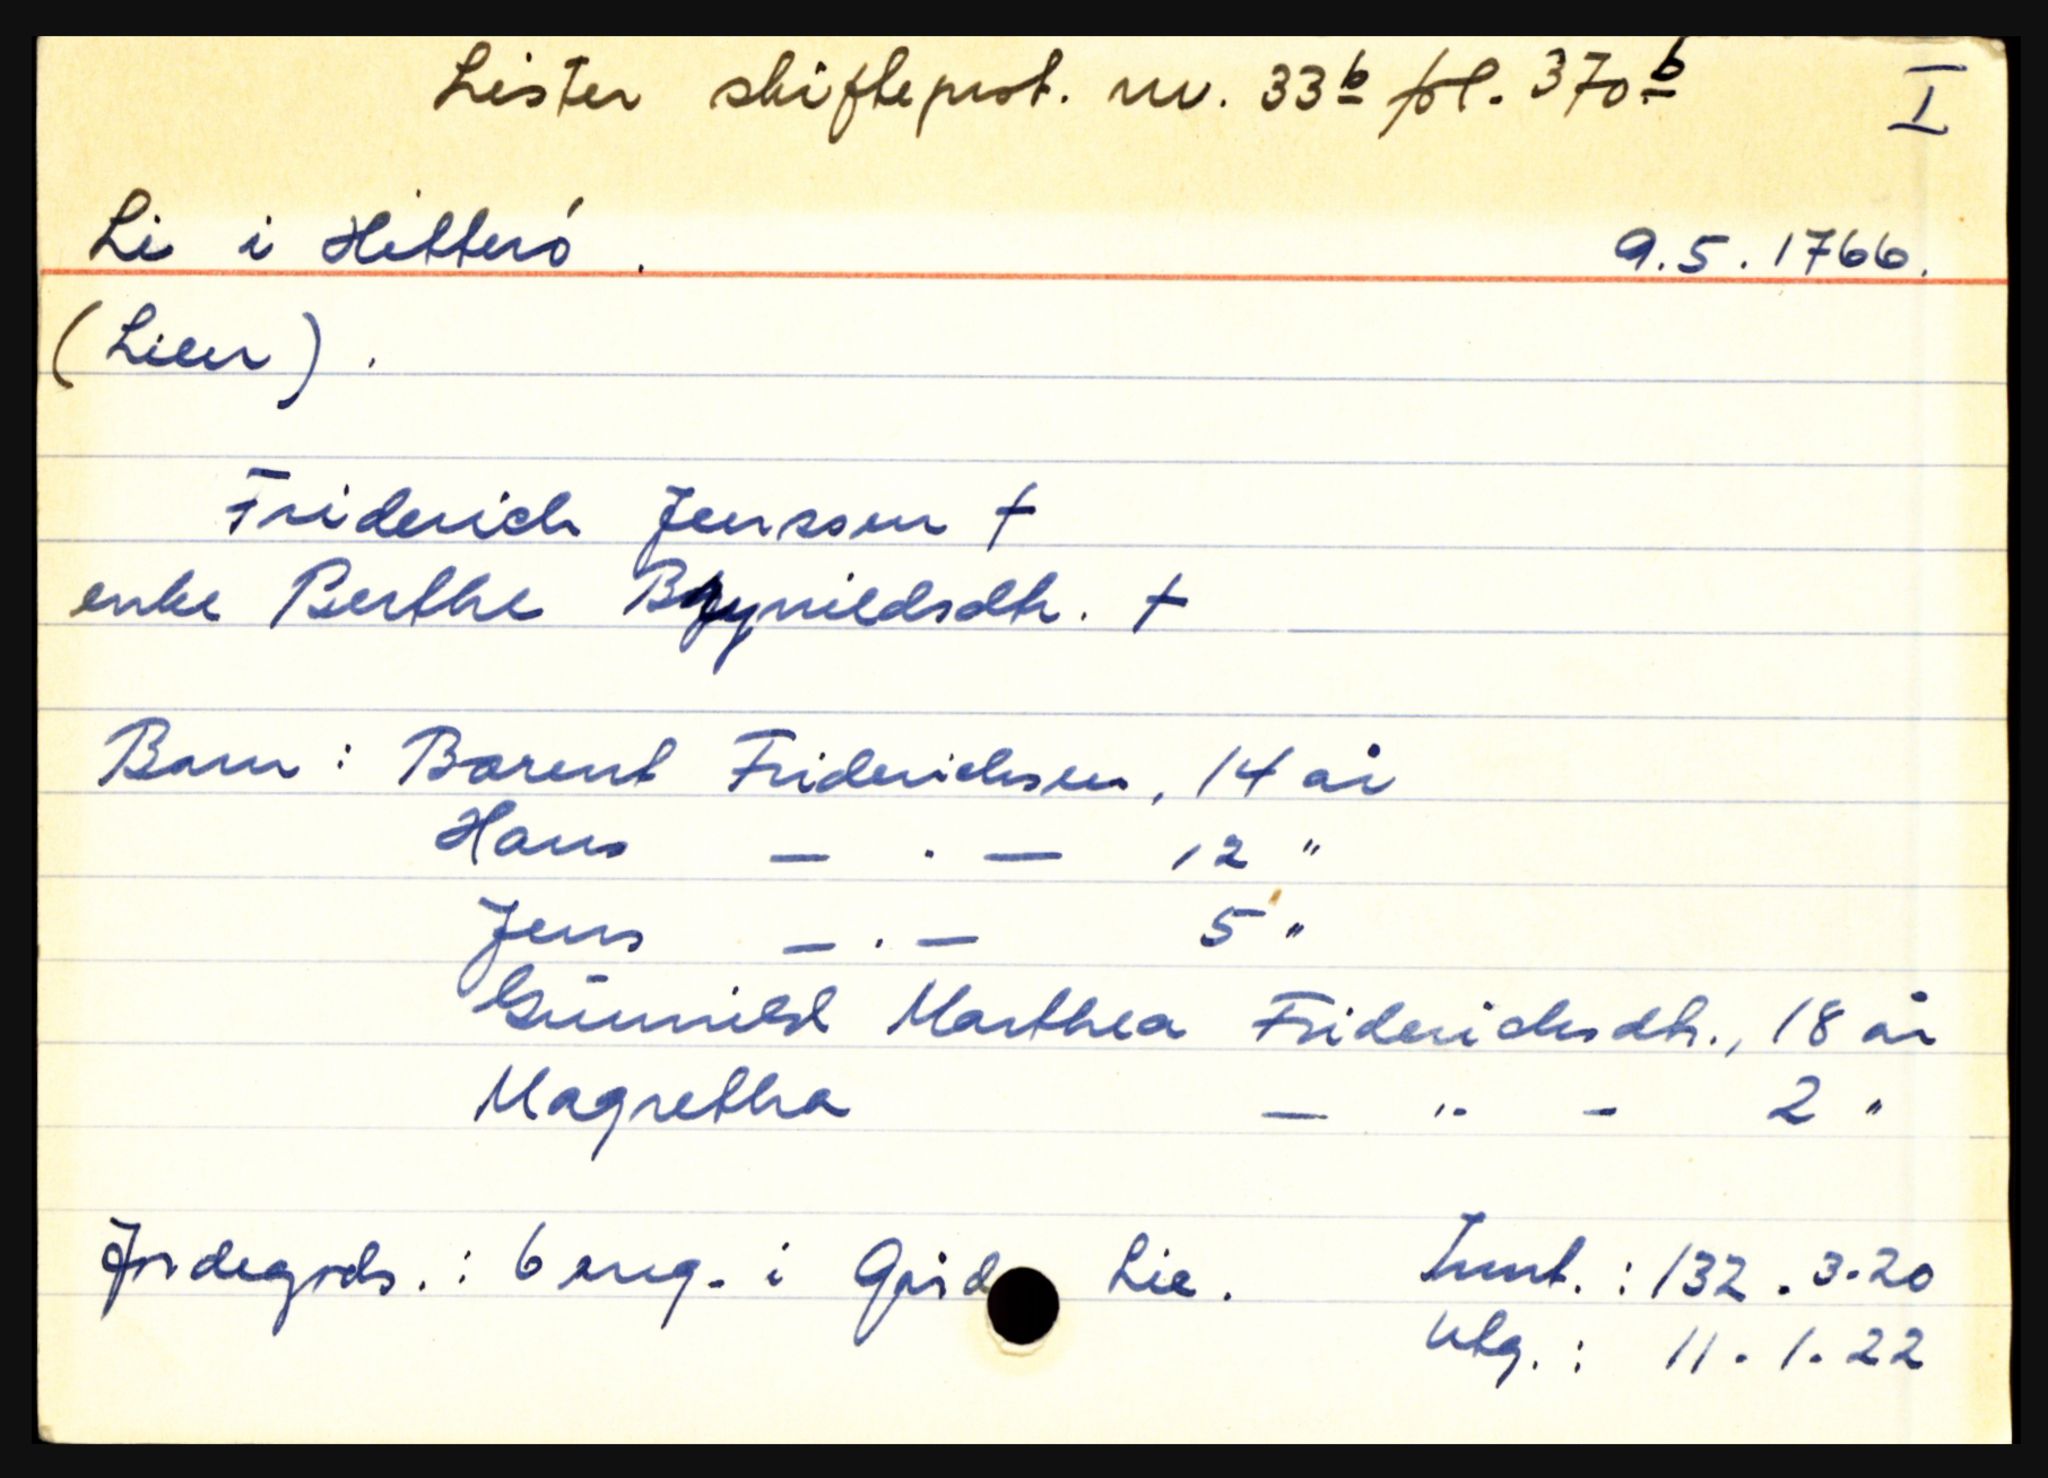 Lister skifteprot. nr. 33b fol. 370b I
Li i Hitterö. 9.5.1766.
(Lien).
Friderich Jenssen †
enke Berthe †
Barn: Barent Friderichsen, 14 år
Hans — . — 12 "
Jens — . — 5 "
Gŭnnild Marthea Friderichsdtr., 18 år
Magretha — " - 2 "
Jordegods.: 6 eng. i Gård Lie. Innt.: 132.3.20
Utg.: 11.1.22